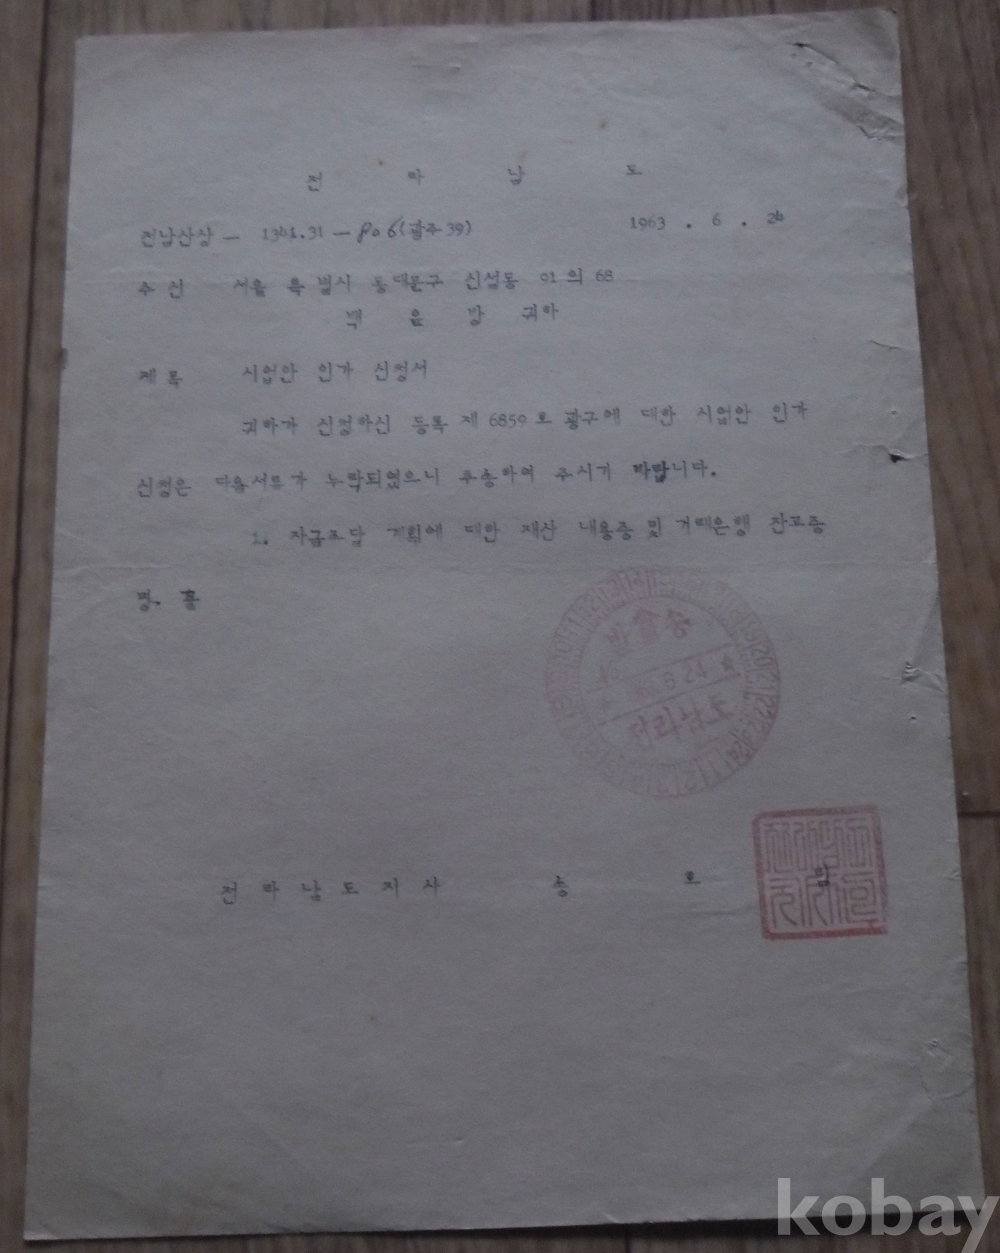 전 라 남 도
전남산상 — 1361.31 — 806(광주39) 1963 . 6 . 24
수신 서울 특별시 동대문구 신설동 91의 68
백 윤 방 귀하
제목 시업안 인가 신청서
귀하가 신청하신 등록 제 6859 호 광구에 대한 시업안 인가
신청은 다음서류가 누락되었으니 추송하여 주시기 바랍니다.
1. 자금조달 계획에 대한 재산 내용증 및 거래은행 잔고증
명. 끝
발송
6 24
전라남도
전라남도지사 송 호 림
kobay